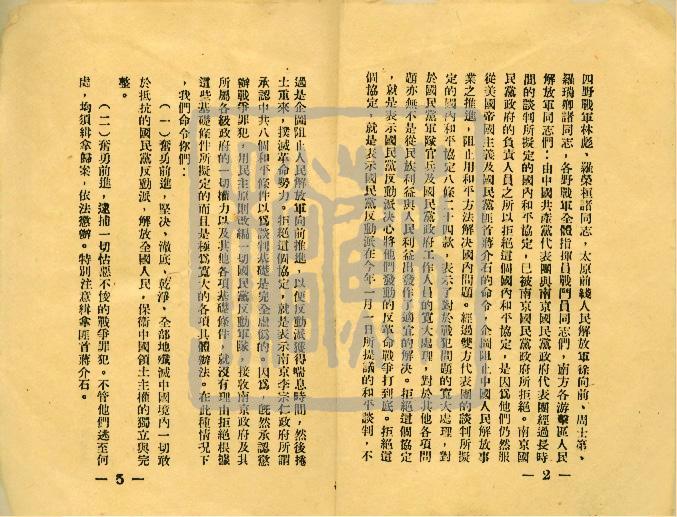 四野戰軍林彪、羅榮桓諸同志，太原前綫人民解放軍徐向前、周士第、
羅瑞卿諸同志，各野戰軍全體指揮員戰鬥員同志們，南方各游擊區人民
解放軍同志們：由中國共產黨代表團與南京國民黨政府代表團經過長時
間的談判所擬定的國內和平協定，已被南京國民黨政府所拒絕。南京國
民黨政府的負責人員之所以拒絕這個國內和平協定，是因爲他們仍然服
從美國帝國主義及國民黨匪首蔣介石的命令，企圖阻止中國人民解放事
業之推進，阻止用和平方法解決國內問題。經過雙方代表團的談判所擬
定的國內和平協定八條二十四款，表示了對於戰犯問題的寬大處理，對
於國民黨軍隊官兵及國民黨政府工作人員的寬大處理，對於其他各項問
題亦無不是從民族利益與人民利益出發作了適宜的解決。拒絕這個協定
，就是表示國民黨反動派決心將他們發動的反革命戰爭打到底。拒絕這
個協定，就是表示國民黨反動派在今年一月一日所提議的和平談判，不
— 2 —
過是企圖阻止人民解放軍向前推進，以便反動派獲得喘息時間，然後捲
土重來，撲滅革命勢力。拒絕這個協定，就是表示南京李宗仁政府所謂
承認中共八個和平條件以爲談判基礎是完全虛僞的。因爲，旣然承認懲
辦戰爭罪犯，用民主原則改編一切國民黨反動軍隊，接收南京政府及其
所屬各級政府的一切權力以及其他各項基礎條件，就沒有理由拒絕根據
這些基礎條件所擬定的而且是極爲寬大的各項具體辦法。在此種情况下
，我們命令你們：
（一）奮勇前進，堅決、澈底、乾淨、全部地殲滅中國境內一切敢
於抵抗的國民黨反動派，解放全國人民，保衛中國領土主權的獨立與完
整。
（二）奮勇前進，逮捕一切怙惡不悛的戰爭罪犯。不管他們逃至何
處，均須緝拿歸案，依法懲辦。特別注意緝拿匪首蔣介石。
— 3 —